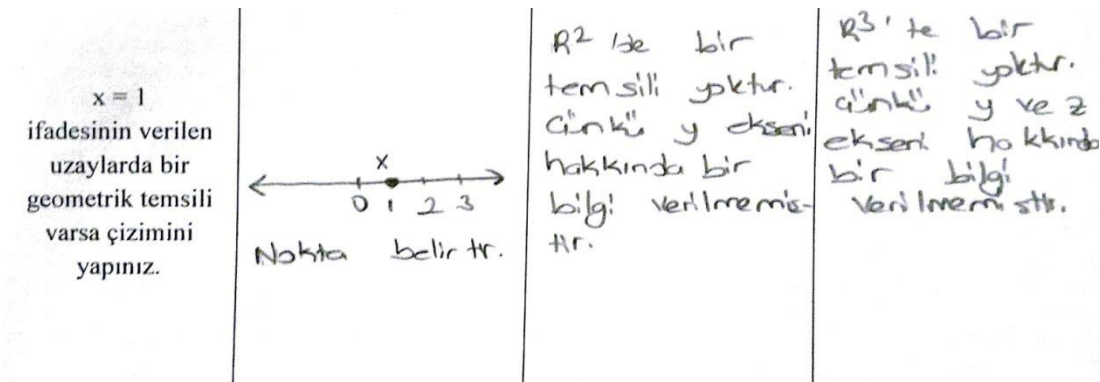 x = 1
ifadesinin verilen
uzaylarda bir
geometrik temsili
varsa çizimini
yapınız.
x
0 1 2 3
Nokta belirtir.
R² 'de bir
temsili yoktur.
Çünkü y ekseni
hakkında bir
bilgi verilmemiş-
tir.
R³' te bir
temsili yoktur.
Çünkü y ve z
ekseni hakkında
bir bilgi
verilmemiştir.